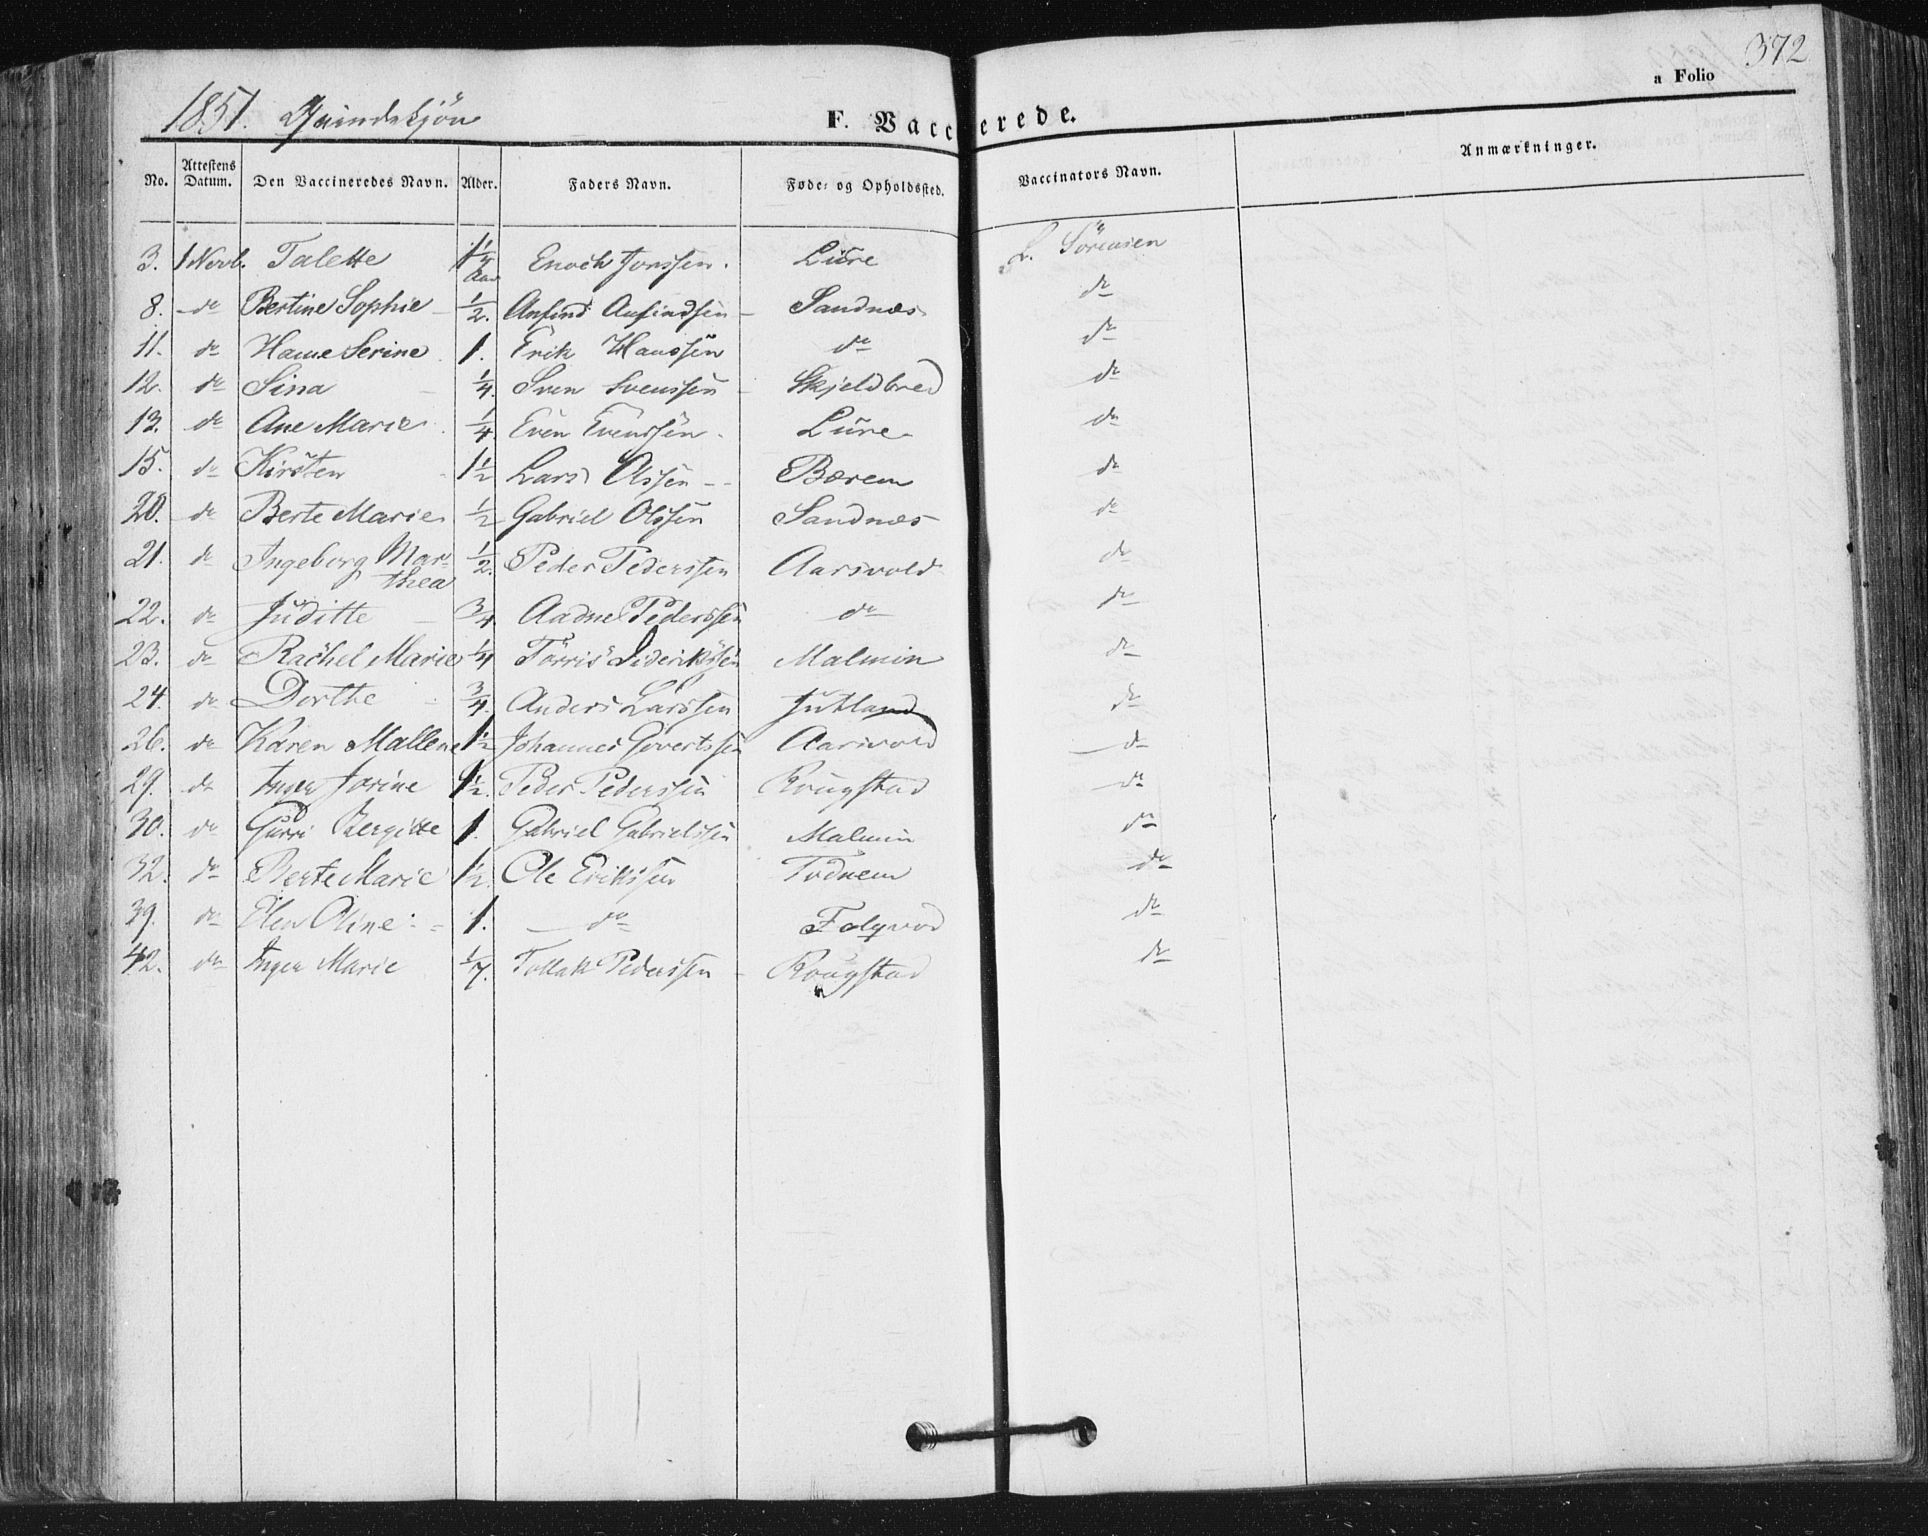 372
a Folio
1851. Qvindekjön F. Vaccinerede.
No. Attestens Datum. Den Vaccineredes Navn. Alder. Faders Navn. Føde- og Opholdssted. Vaccinators Navn. Anmærkninger.
3. 1 Novb. Talette 1 1/4 Aar Enoch Jonssen. Lure L. Sörensen
8. do Bertine Sophie 1/2. Anfind Anfindsen Sandnæs do
11. do Hanne Serine 1. Erik Hanssen do do
12. do Sina 1/4. Sven Svenssen Skjeldbred do
13. do Ane Marie 1/4 Even Evenssen Lure do
15. do Kirsten 1 1/2 Lars Olssen Bærem do
20. do Berte Marie 1/2 Gabriel Olssen Sandnæs do
21. do Ingeborg Mar-
thea 1/2. Peder Pederssen Aarsvold do
22. do Juditte 3/4. Aadne Pederssen do do
23. do Rachel Marie 1/4 Törris Dideriksen Malmin do
24. do Dorthe 3/4. Anders Larssen Jutland do
26. do Karen Mallene 1 1/2 Johannes Govertssen Aarsvold do
29. do Inger Jorine 1 1/2. Peder Pederssen Rougstad do
30. do Gurri Bergitte 1. Gabriel Gabrielssen Malmin do
32. do Berte Marie 1/2. Ole Erikssen Todnem do
39. do Elen Oline 1. do Folqvod do
42. do Inger Marie 1/7. Tollak Pederssen Rougstad do